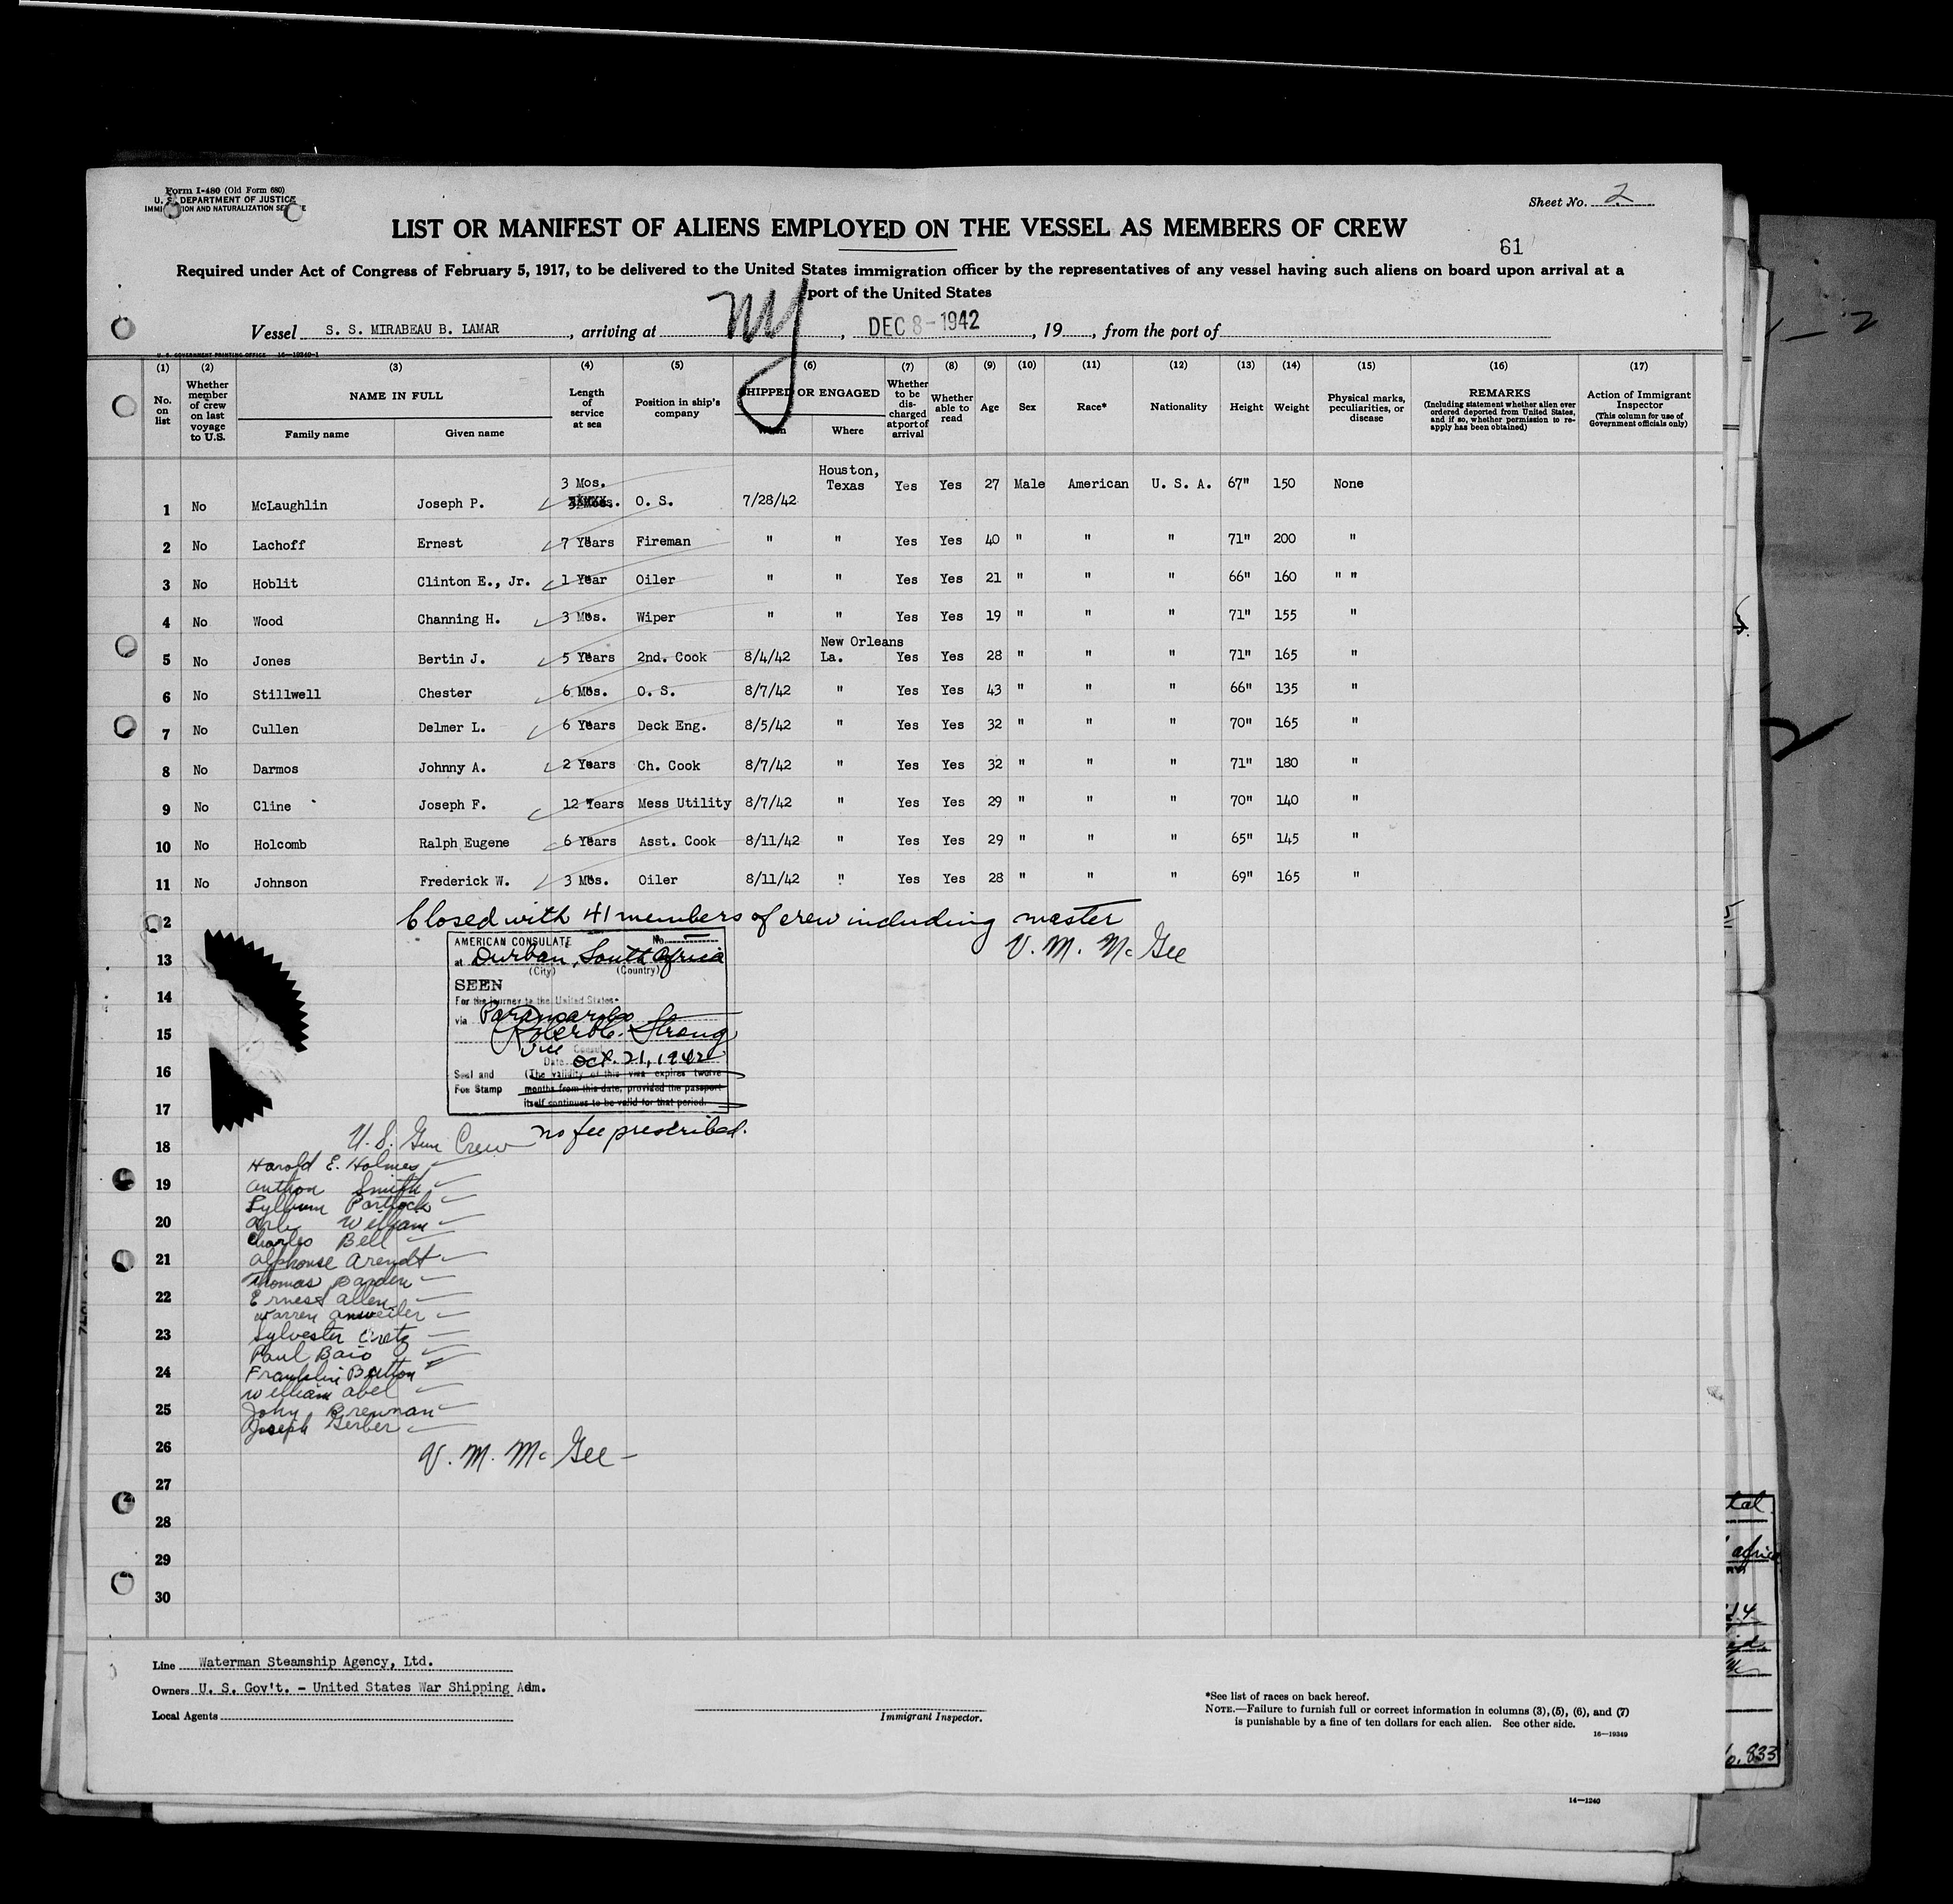 Form I-480 (Old Form 680)
U. S. DEPARTMENT OF JUSTICE
IMMIGRATION AND NATURALIZATION SERVICE
Sheet No. 2
LIST OR MANIFEST OF ALIENS EMPLOYED ON THE VESSEL AS MEMBERS OF CREW
61
Required under Act of Congress of February 5, 1917, to be delivered to the United States immigration officer by the representatives of any vessel having such aliens on board upon arrival at a
port of the United States
Vessel S. S. MIRABEAU B. LAMAR, arriving at NY, DEC 8-1942, 19, from the port of
U. S. GOVERNMENT PRINTING OFFICE 16-19349-1
(1) (2) (3) (4) (5) (6) (7) (8) (9) (10) (11) (12) (13) (14) (15) (16) (17)
No. on list
Whether member of crew on last voyage to U.S.
NAME IN FULL
Family name Given name
Length of service at sea
Position in ship's company
SHIPPED OR ENGAGED
When Where
Whether to be discharged at port of arrival
Whether able to read
Age
Sex
Race*
Nationality
Height
Weight
Physical marks, peculiarities, or disease
REMARKS
(Including statement whether alien ever ordered deported from United States, and if so, whether permission to reapply has been obtained)
Action of Immigrant Inspector
(This column for use of Government officials only)
1 No McLaughlin Joseph P. 3 Mos. O. S. 7/28/42 Houston, Texas Yes Yes 27 Male American U. S. A. 67" 150 None
2 No Lachoff Ernest 7 Years Fireman " " Yes Yes 40 " " " 71" 200 "
3 No Hoblit Clinton E., Jr. 1 Year Oiler " " Yes Yes 21 " " " 66" 160 " "
4 No Wood Channing H. 3 Mos. Wiper " " Yes Yes 19 " " " 71" 155 "
5 No Jones Bertin J. 5 Years 2nd. Cook 8/4/42 New Orleans La. Yes Yes 28 " " " 71" 165 "
6 No Stillwell Chester 6 Mos. O. S. 8/7/42 " Yes Yes 43 " " " 66" 135 "
7 No Cullen Delmer L. 6 Years Deck Eng. 8/5/42 " Yes Yes 32 " " " 70" 165 "
8 No Darmos Johnny A. 2 Years Ch. Cook 8/7/42 " Yes Yes 32 " " " 71" 180 "
9 No Cline Joseph F. 12 Years Mess Utility 8/7/42 " Yes Yes 29 " " " 70" 140 "
10 No Holcomb Ralph Eugene 6 Years Asst. Cook 8/11/42 " Yes Yes 29 " " " 65" 145 "
11 No Johnson Frederick W. 3 Mos. Oiler 8/11/42 " Yes Yes 28 " " " 69" 165 "
2 Closed with 41 members of crew including master
V. M. McGee
AMERICAN CONSULATE No.
13 at Durban, South Africa
(City) (Country)
SEEN
14 For the journey to the United States
via Paramaribo
15 Robert C. Strong
Vice Consul
Date Oct. 21, 1942
16 Seal and (The validity of this visa expires twelve
Fee Stamp months from this date, provided the passport
17 itself continues to be valid for that period.
no fee prescribed.
18 U. S. Gun Crew
Harold E. Holmes
19 Smith
20 William
Charles Bell
21 Alphonse Arendt
Thomas
22 Ernest Allen
Warren Anweiler
23 Sylvester
Paul Baio
24 Franklin Button
William Abel
25 John Brennan
Joseph Gerber
26 V. M. McGee
27
28
29
30
Line Waterman Steamship Agency, Ltd.
Owners U. S. Gov't. - United States War Shipping Adm.
Local Agents
Immigrant Inspector.
*See list of races on back hereof.
NOTE.—Failure to furnish full or correct information in columns (3), (5), (6), and (7)
is punishable by a fine of ten dollars for each alien. See other side.
16-19349
14-1240
tal
africa
14
833